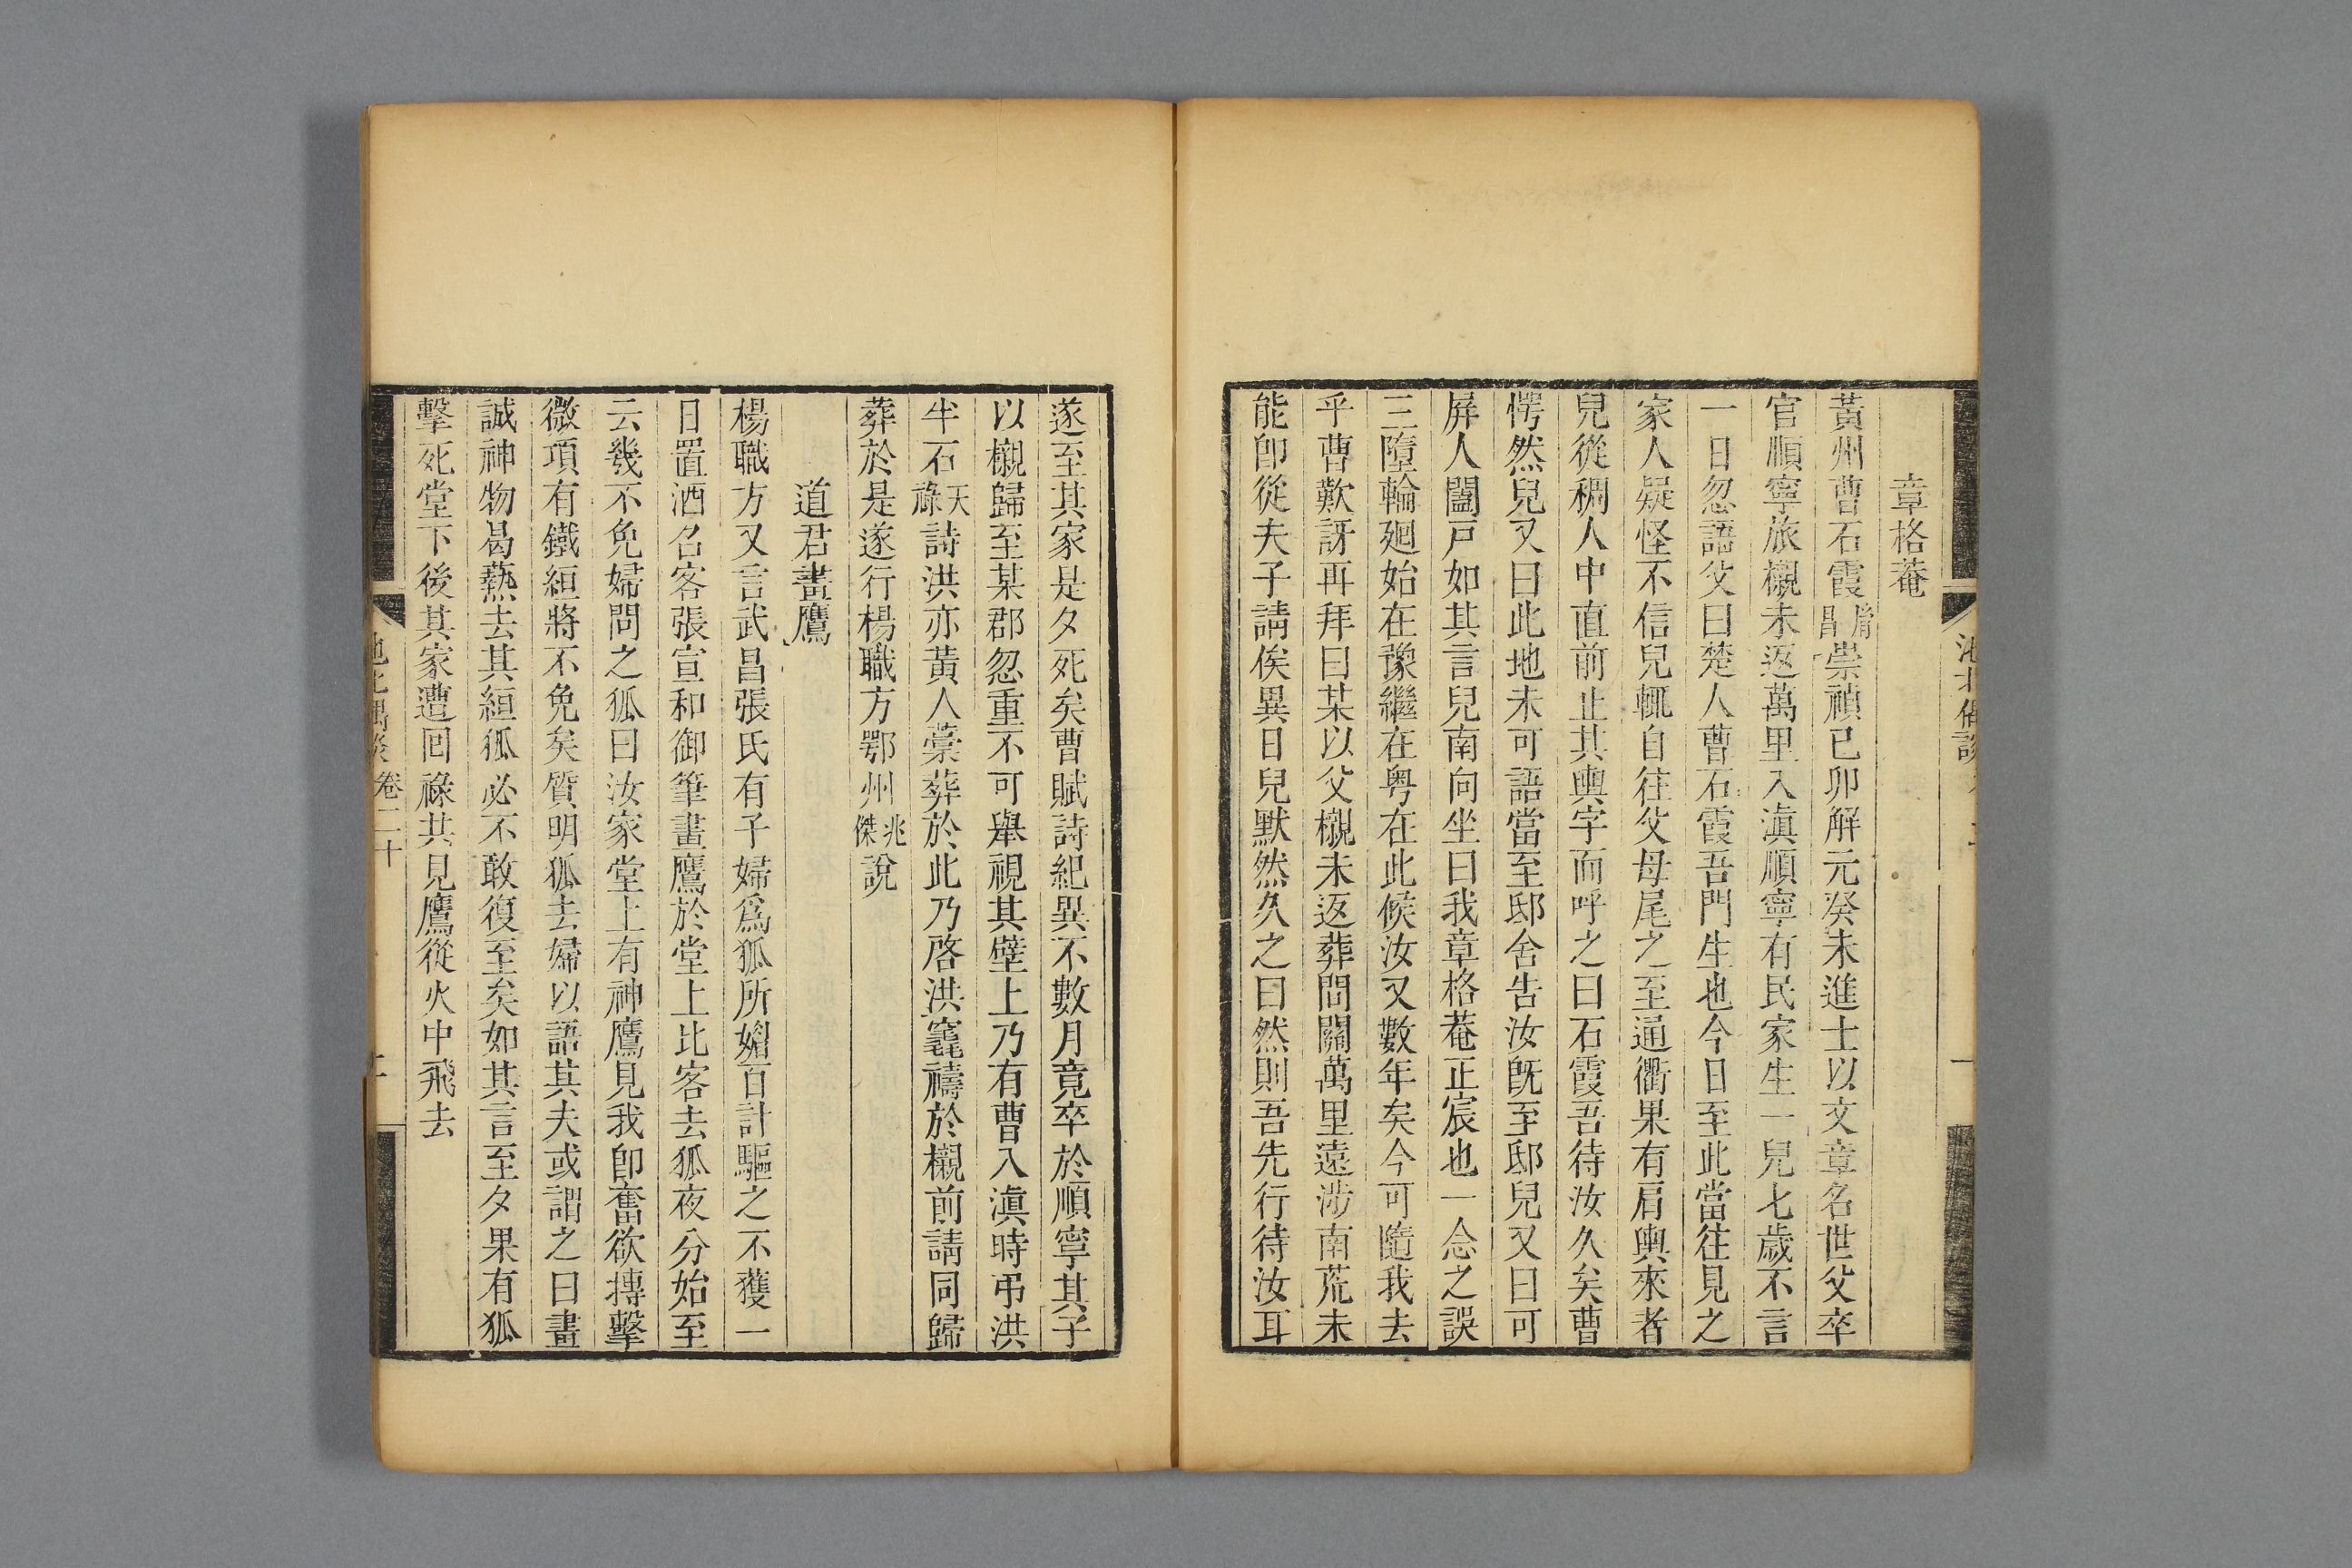 章格菴
黃州曹石霞胤昌崇禎己卯解元癸未進士以文章名世父卒
官順寧旅櫬未返萬里入滇順寧有民家生一兒七歲不言
一日忽語父曰楚人曹石霞吾門生也今日至此當往見之
家人疑怪不信兒輒自往父母尾之至通衢果有肩輿來者
兒從稠人中直前止其輿字而呼之曰石霞吾待汝久矣曹
愕然兒又曰此地未可語當至邸舍告汝旣至邸兒又曰可
屏人闔戸如其言兒南向坐曰我章格菴正宸也一念之誤
三墮輪廻始在豫繼在粵在此候汝又數年矣今可隨我去
乎曹歎訝再拜曰某以父櫬未返葬間關萬里遠涉南荒未
能卽從夫子請俟異日兒默然久之曰然則吾先行待汝耳
遂至其家是夕死矣曹賦詩紀異不數月竟卒於順寧其子
以櫬歸至某郡忽重不可舉視其壁上乃有曹入滇時弔洪
半石天祿詩洪亦黃人藁葬於此乃啓洪窆禱於櫬前請同歸
葬於是遂行楊職方鄂州兆傑說
道君畫鷹
楊職方又言武昌張氏有子婦爲狐所媚百計驅之不獲一
日置酒名客張宣和御筆畫鷹於堂上比客去狐夜分始至
云幾不免婦問之狐曰汝家堂上有神鷹見我卽奮欲搏擊
微項有鐵絙將不免矣質明狐去婦以語其夫或謂之曰畫
誠神物曷爇去其絙狐必不敢復至矣如其言至夕果有狐
擊死堂下後其家遭回祿共見鷹從火中飛去
池北偶談 卷二十